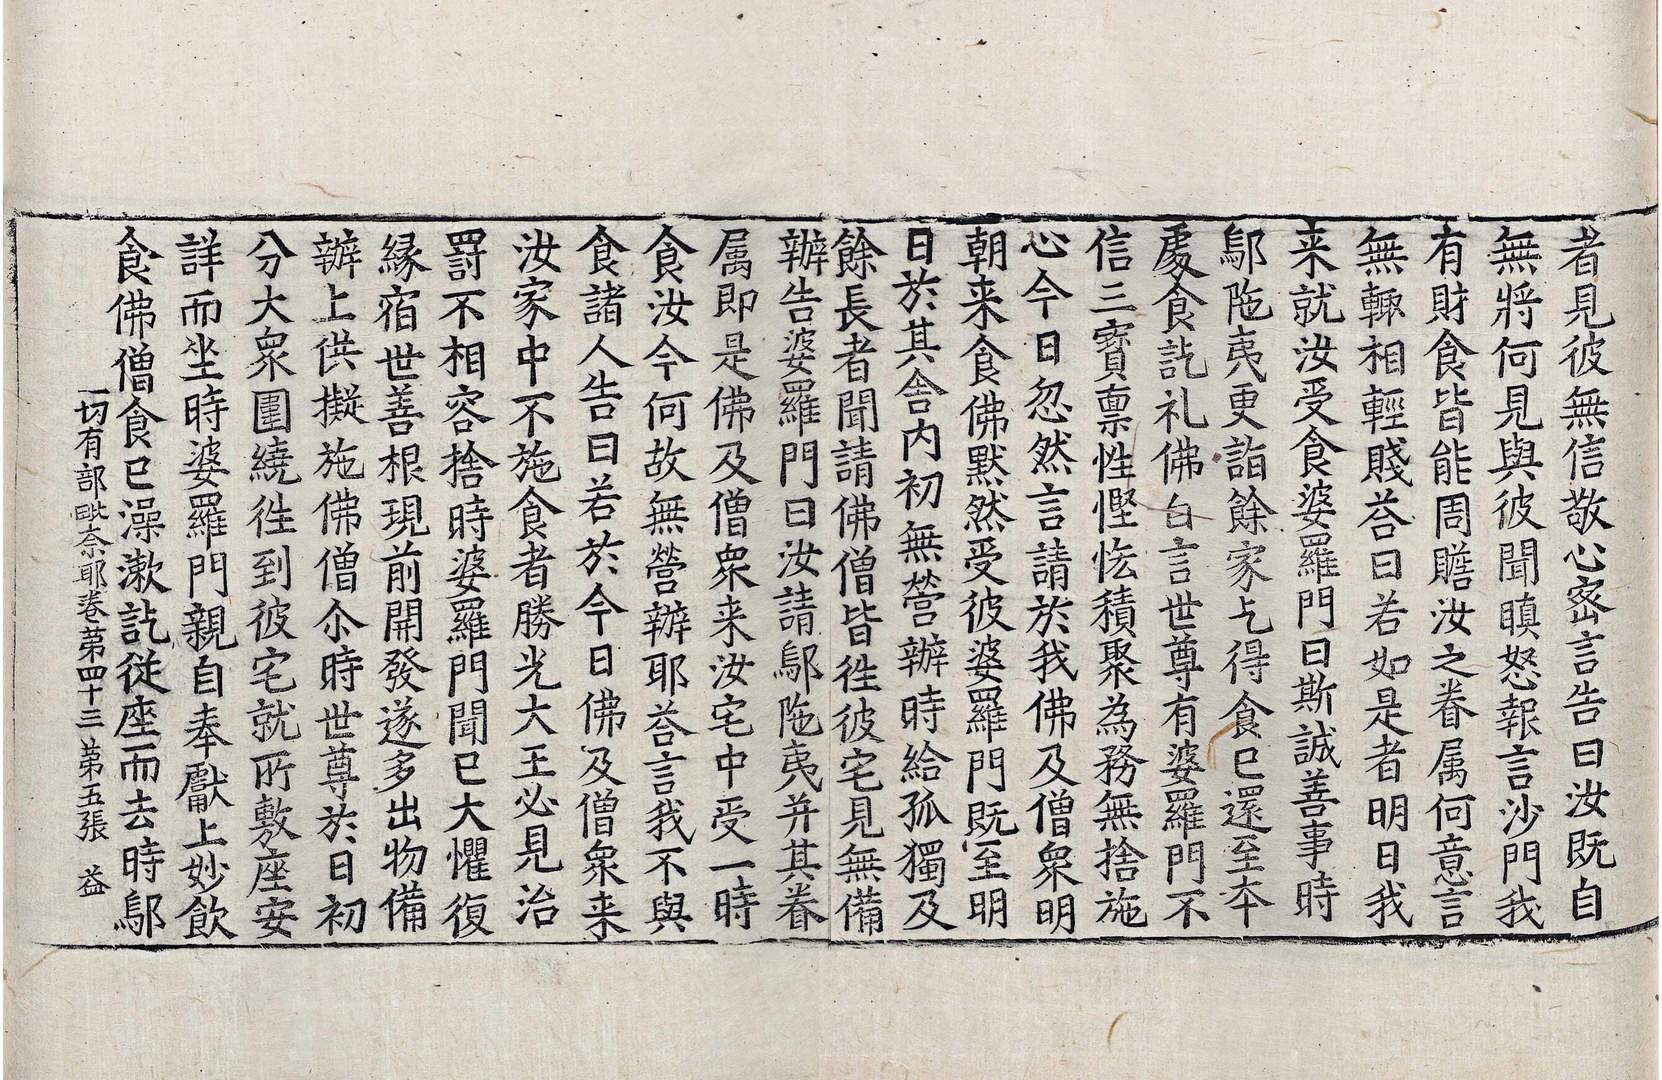 者見彼無信敬心密言告曰汝既自
無將何見與彼聞瞋怒報言沙門我
有財食皆能周贍汝之眷属何意言
無輙相輕賤荅曰若如是者明日我
来就汝受食婆羅門曰斯誠善事時
鄔陁夷更詣餘家乞得食已還至本
䖏食訖礼佛白言世尊有婆羅門不
信三寶禀性慳悋積聚為務無捨施
心今日忽然言請於我佛及僧衆明
朝来食佛默然受彼婆羅門既至明
日於其舍内初無營辦時給孤獨及
餘長者聞請佛僧皆徃彼宅見無備
辦告婆羅門曰汝請鄔陁夷并其眷
属即是佛及僧衆来汝宅中受一時
食汝今何故無營辦耶荅言我不與
食諸人告曰若於今日佛及僧衆来
汝家中不施食者勝光大王必見治
罸不相容捨時婆羅門聞已大懼復
縁宿世善根現前開發遂多出物備
辦上供擬施佛僧尒時世尊於日初
分大衆圍繞徃到彼宅就所敷座安
詳而坐時婆羅門親自奉獻上妙飲
食佛僧食已澡漱訖従座而去時鄔
一切有部毗奈耶卷第四十三 第五張 益